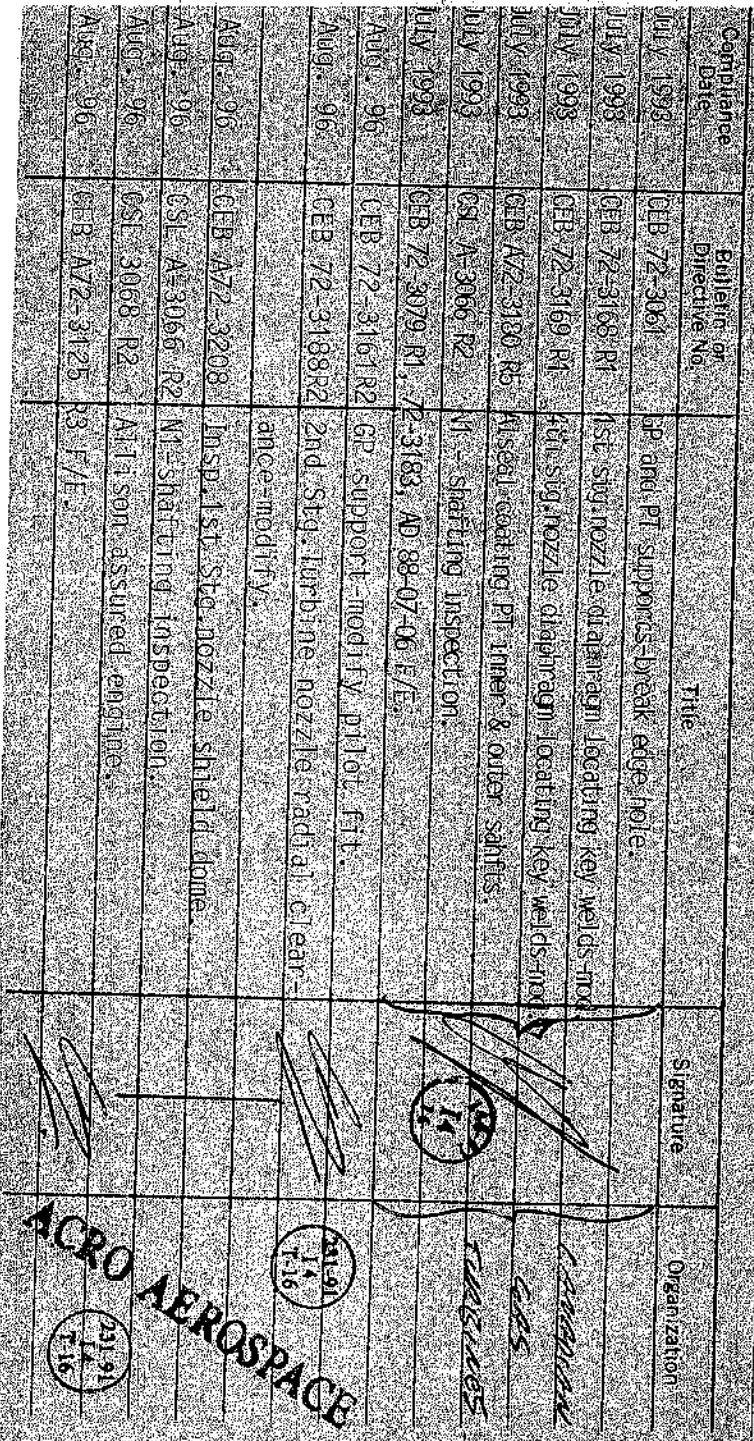 Compliance Date Bulletin or Directive No. Title Signature Organization
July 1993 CEB 72-3061 GP and PT supports-break edge hole.
July 1993 CEB 72-3168 R1 1st stg.nozzle diaphragm locating key welds-mod
July 1993 CEB 72-3169 R1 4th stg.nozzle diaphragm locating key welds-mod
July 1993 CEB A72-3130 coating PT inner & outer shafts.
July 1993 CSL A-3066 R2 N1 - shafting inspection.
July 1993 CEB 72-3079 R1, 72-3183, AD 88-07-06 F/E.
CANADIAN
GAS
TURBINES
Aug. 96 CEB 72-3161R2 GP support-modify pilot fit.
Aug. 96 CEB 72-3188R2 2nd Stg.Turbine nozzle radial clear-
ance-modify.
Aug. 96 CEB A72-3208 Insp.1st Stg.nozzle shield dome.
Aug. 96 CSL A-3066 R2 N1-shafting inspection.
Aug. 96 CSL 3068 R2 Allison assured engine.
Aug. 96 CEB A72-3125 R3 F/E.
231-91
T-16
ACRO AEROSPACE
231-91
T-16